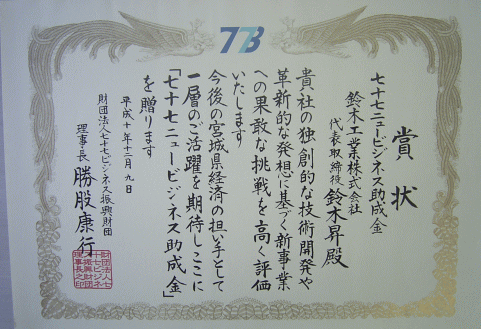 77B
賞状
七十七ニュービジネス助成金
鈴木工業株式会社
代表取締役 鈴木昇殿
貴社の独創的な技術開発や
革新的な発想に基づく新事業
への果敢な挑戦を高く評価
いたします
今後の宮城県経済の担い手として
一層のご活躍を期待しここに
「七十七ニュービジネス助成金」
を贈ります
平成十年十二月九日
財団法人七十七ビジネス振興財団
理事長 勝股康行
財団法人七
十七ビジネ
ス振興財団
理事長之印